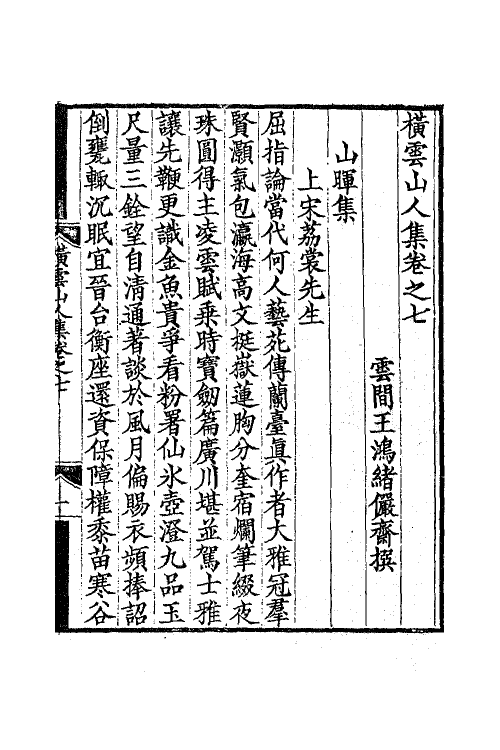 橫雲山人集卷之七
雲間王鴻緒儼齋撰
山暉集
上宋荔裳先生
屈指論當代何人藝苑傳蘭臺眞作者大雅冠羣
賢灝氣包瀛海高文挺嶽蓮胸分奎宿爛筆綴夜
珠圓得主凌雲賦乘時寶劒篇廣川堪並駕士雅
讓先鞭更識金魚貴爭看粉署仙氷壺澄九品玉
尺量三銓望自清通著談於風月偏賜衣頻捧詔
倒甕輙沉眠宜晉台衡座還資保障權黍苗寒谷
橫雲山人集卷之七
一